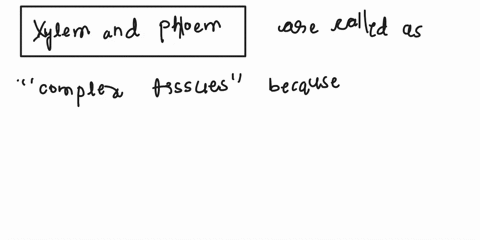 Xylem and Phloem are called as
"complex tissues" because